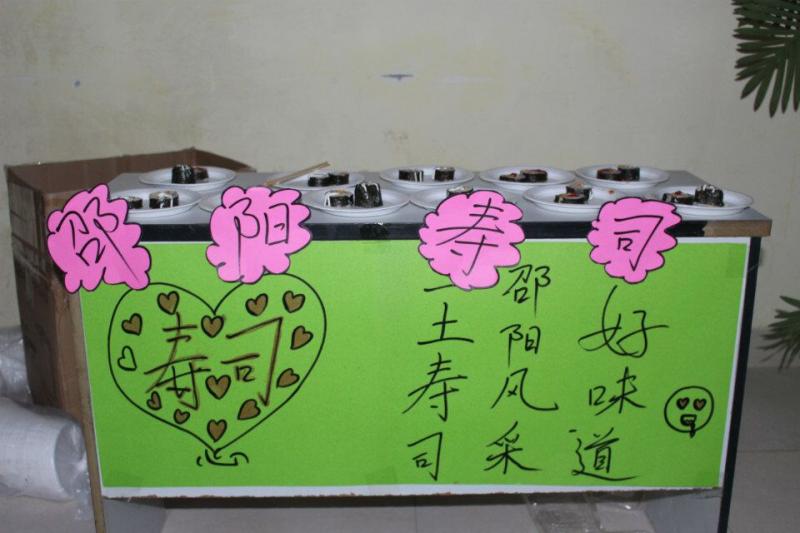 邵阳寿司
寿司
土寿司
邵阳风采
好味道